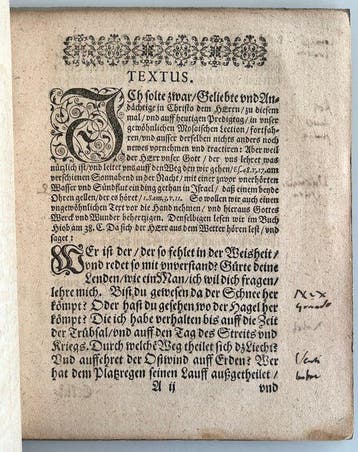 TEXTUS.
ICh solte zwar/ Geliebte vnd An-
dächtige in Christo dem HErrn/ zu diesem
mal/ vnd auff heutigen Predigtag/ in vnser
gewöhnlichen Mosaischen Lection/ fortfah-
ren/ vnd ausser derselben nichts anders noch
newes vornehmen vnd tractiren: Aber weil
der HErr vnser Gott/ der vns lehret was
nützlich ist/ vnd leitet vns auff den Weg den wir gehen/ Es. 48. v. 17. am
verschienen Sonnabend in der Nacht/ mit einer zuvor vnerhörten
Wasser vnd Sündflut ein ding gethan in Israel/ daß einem beyde
Ohren gellen/ der es höret/ 1. Sam. 3. v. 11. So wollen wir auch einen
vngewöhnlichen Text vor die Hand nehmen/ vnd hieraus Gottes
Werck vnd Wunder behertzigen. Denselbigen lesen wir im Buch
Hiob am 38. C. Da sich der HErr aus dem Wetter hören lest/ vnd
saget:
WEr ist der/ der so fehlet in der Weisheit/
vnd redet so mit vnverstand? Gürte deine
Lenden/ wie ein Man/ ich wil dich fragen/
lehre mich. Bist du gewesen da der Schnee her
kömpt? Oder hast du gesehen/ wo der Hagel her
kömpt? Die ich habe verhalten bis auff die Zeit
der Trübsal/ vnd auff den Tag des Streits vnd
Kriegs. Durch welchē Weg theilet sich dz Liecht?
Vnd auffehret der Ostwind auff Erden? Wer
hat dem Platzregen seinen Lauff außgetheilet/
A ij
vnd